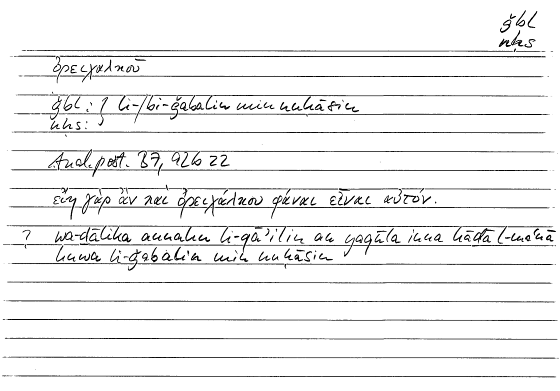 ǧbl
nḥs
ὀρειχαλκοῦ
ǧbl: } li-/bi-ǧabalin min nuḥāsin
nḥs:
Anal. post. B7, 92b22
εἴη γὰρ ἂν καὶ ὀρειχάλκου φάναι εἶναι αὐτόν.
? wa-ḏālika annahu li-qāʾilin an yaqūla inna hāḏā l-maʿnā
huwa li-ǧabalin min nuḥāsin